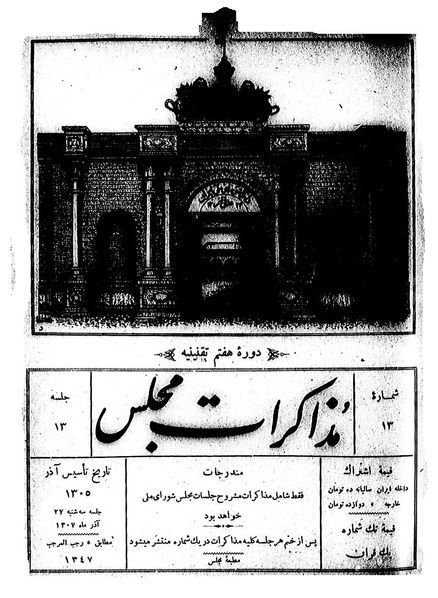 دورهٔ هفتم تقنینیه
شمارهٔ
۱۳
مذاکرات مجلس
جلسه
۱۳
قیمة اشتراك
داخله ایران سالیانه ده تومان
خارجه » دوازده تومان
قیمة تك شماره
یك قران
مندرجات
فقط شامل مذاکرات مشروح جلسات مجلس شورای ملی
خواهد بود
پس از ختم هر جلسه کلیه مذاکرات در یك شماره منتشر میشود
مطبعهٔ مجلس
تاریخ تأسیس آذر
۱۳۰۵
جلسه سه شنبه ۲۷
آذر ماه ۱۳۰۷
مطابق ۵ رجب المرجب
۱۳۴۷